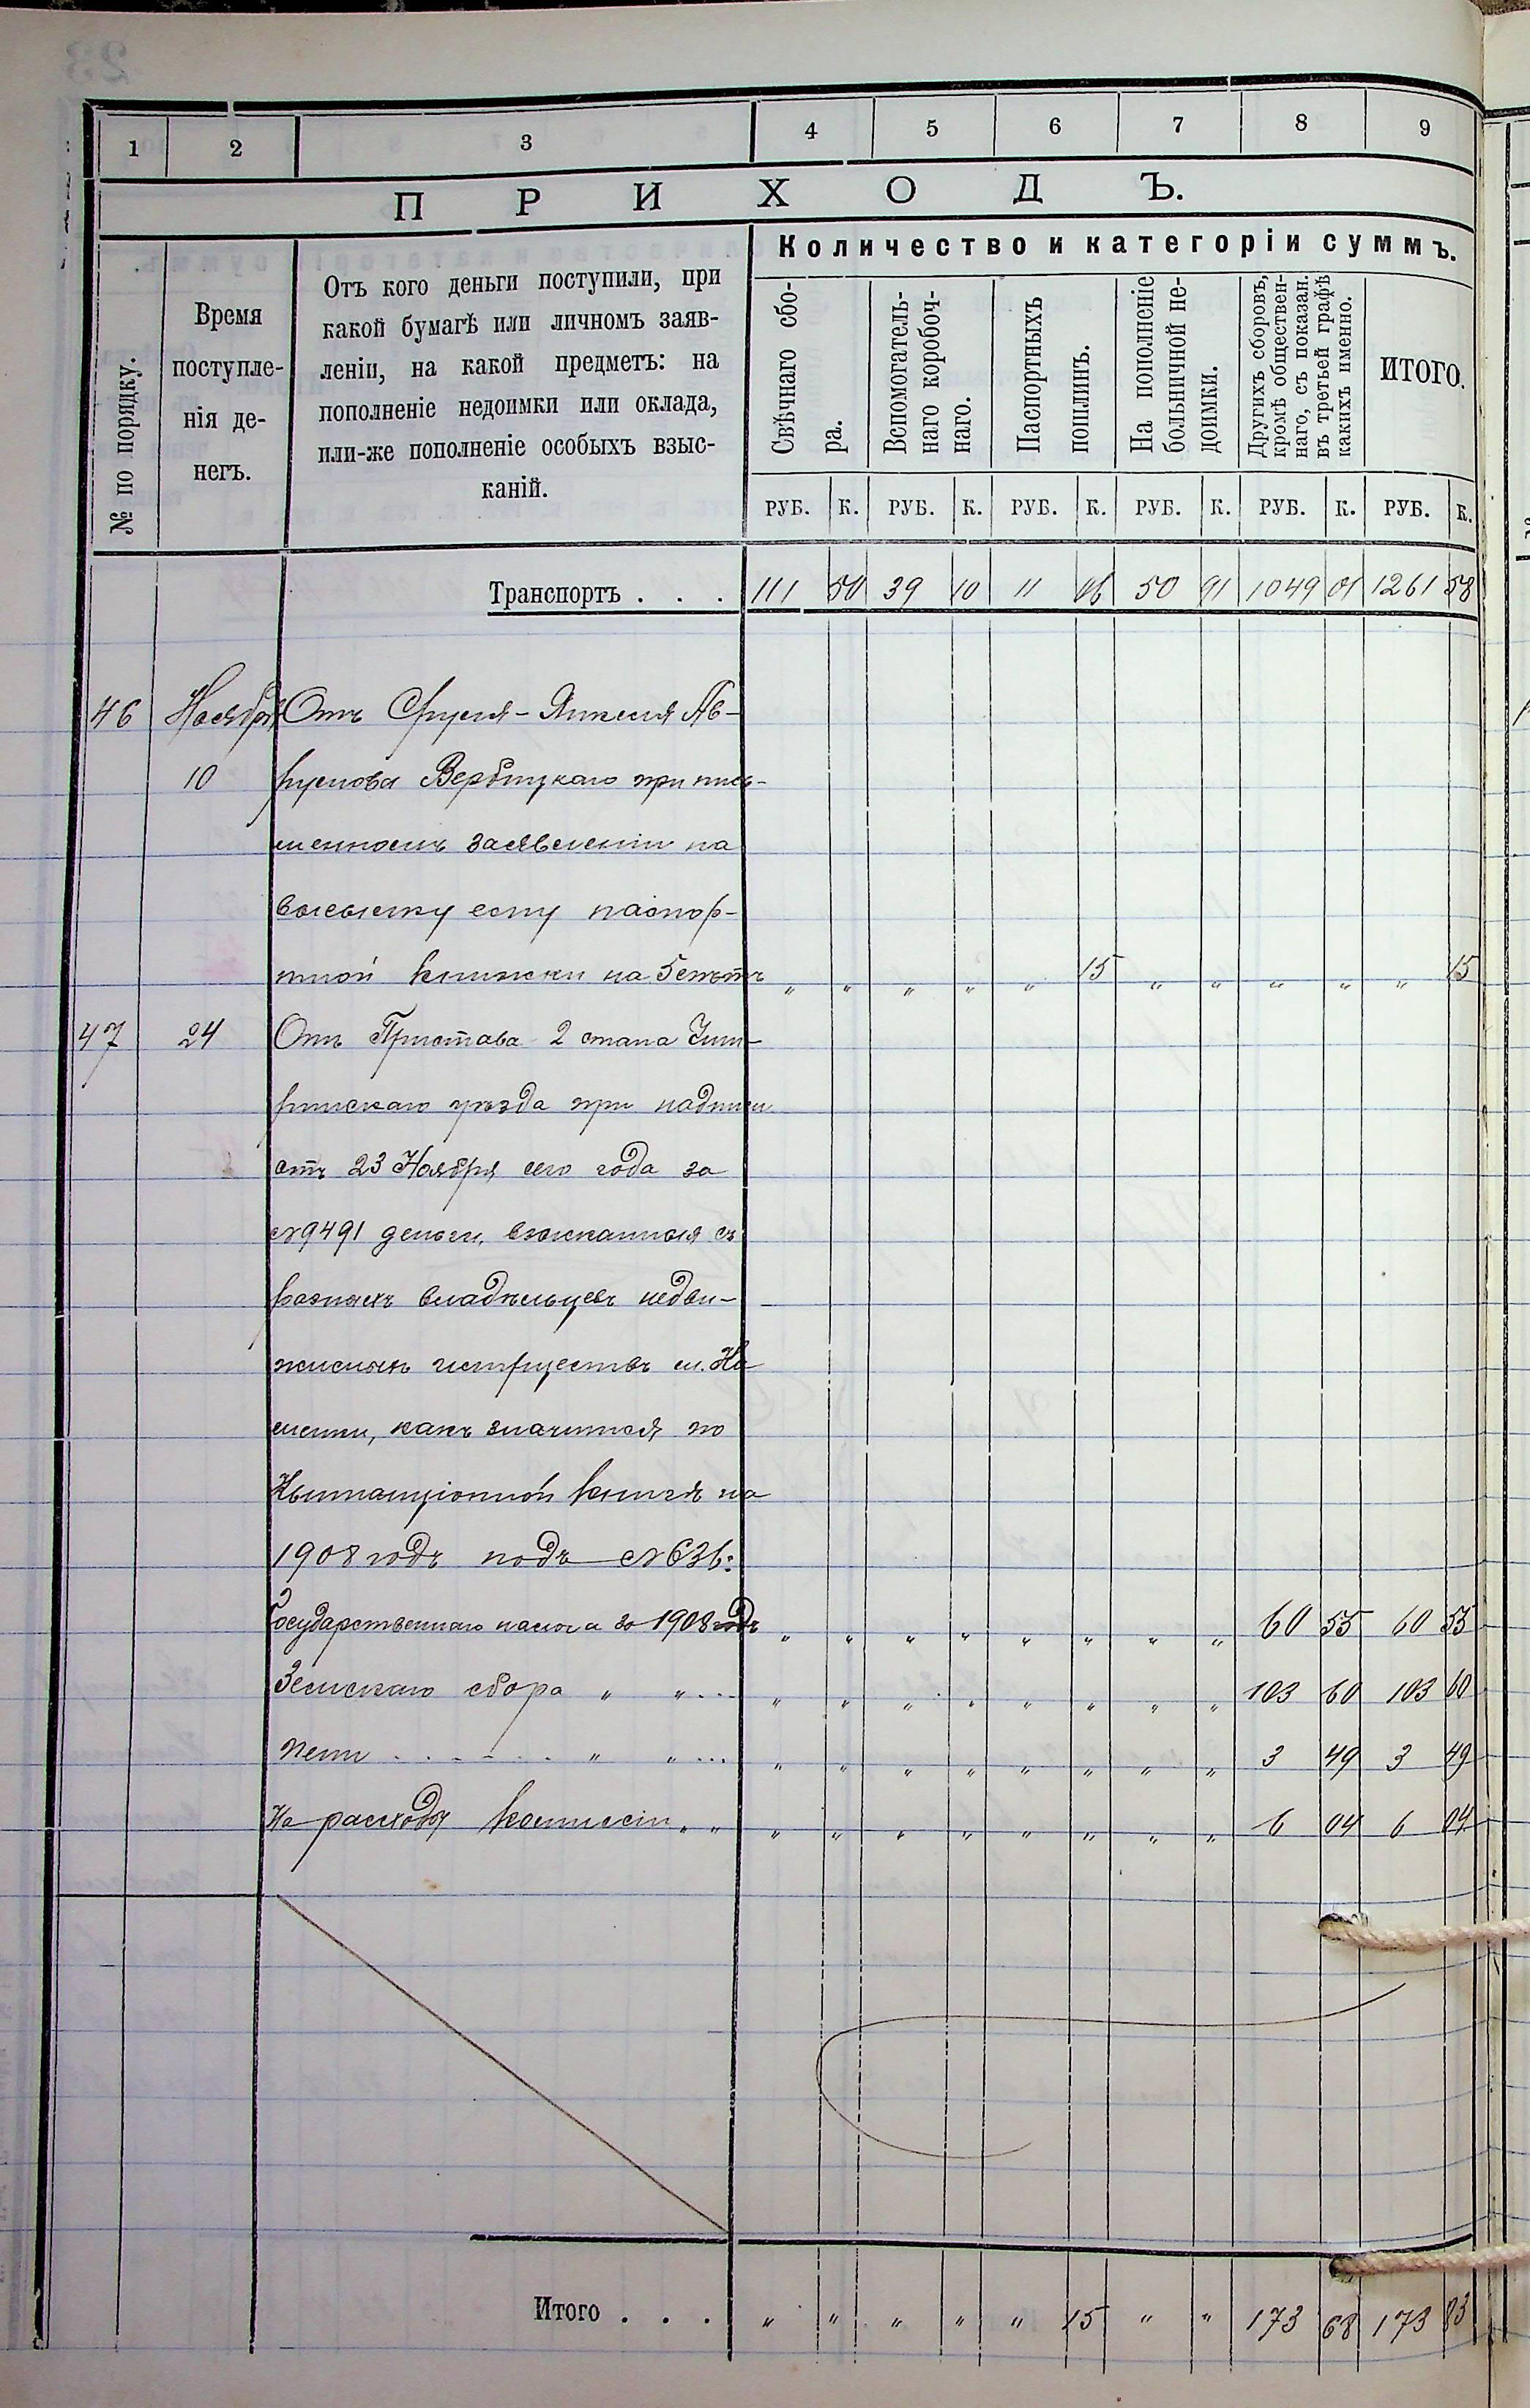 1 2 3 4 5 6 7 8 9
ПРИХОДЪ.
№ по порядку.
Время
поступле-
нія де-
негъ.
Отъ кого деньги поступили, при
какой бумагѣ или личномъ заяв-
леніи, на какой предметъ: на
пополненіе недоимки или оклада,
или-же пополненіе особыхъ взыс-
каній.
Количество и категоріи суммъ.
Свѣчнаго сбо-
ра.
Вспомогатель-
наго коробоч-
наго.
Паспортныхъ
пошлинъ.
На пополненіе
больничной не-
доимки.
Другихъ сборовъ,
кромѣ обществен-
наго, съ показан.
въ третьей графѣ
какихъ именно.
ИТОГО.
РУБ. К. РУБ. К. РУБ. К. РУБ. К. РУБ. К. РУБ. К.
Транспортъ . . . 111 50 39 10 11 06 50 91 1049 01 1261 58
46 Ноября Отъ Сруля-Янкеля Аб-
10 Вербицкаго при пись-
менномъ заявленіи на
высылку ему паспор-
тной книжки на 5 лѣтъ " " " " " 15 " " " " " 15
47 24 Отъ Пристава 2 стана Чиги-
ринскаго уѣзда при надписи
отъ 23 Ноября сего года за
№ 9491 деньги, взысканныя съ
разныхъ владѣльцевъ недви-
жимыхъ имуществъ м.
какъ значится по
Квитанціонной книгѣ на
1908 годъ подъ № 636:
Государственнаго налога за 1908 годъ " " " " " " " " 60 55 60 55
Земскаго сбора " " ... " " " " " " " " 103 60 103 60
Пени . . . . . . " " ... " " " " " " " " 3 49 3 49
На расходы комиссіи " " " " " " " " " " 6 04 6 04
Итого . . . " " " " " 15 " " 173 68 173 83